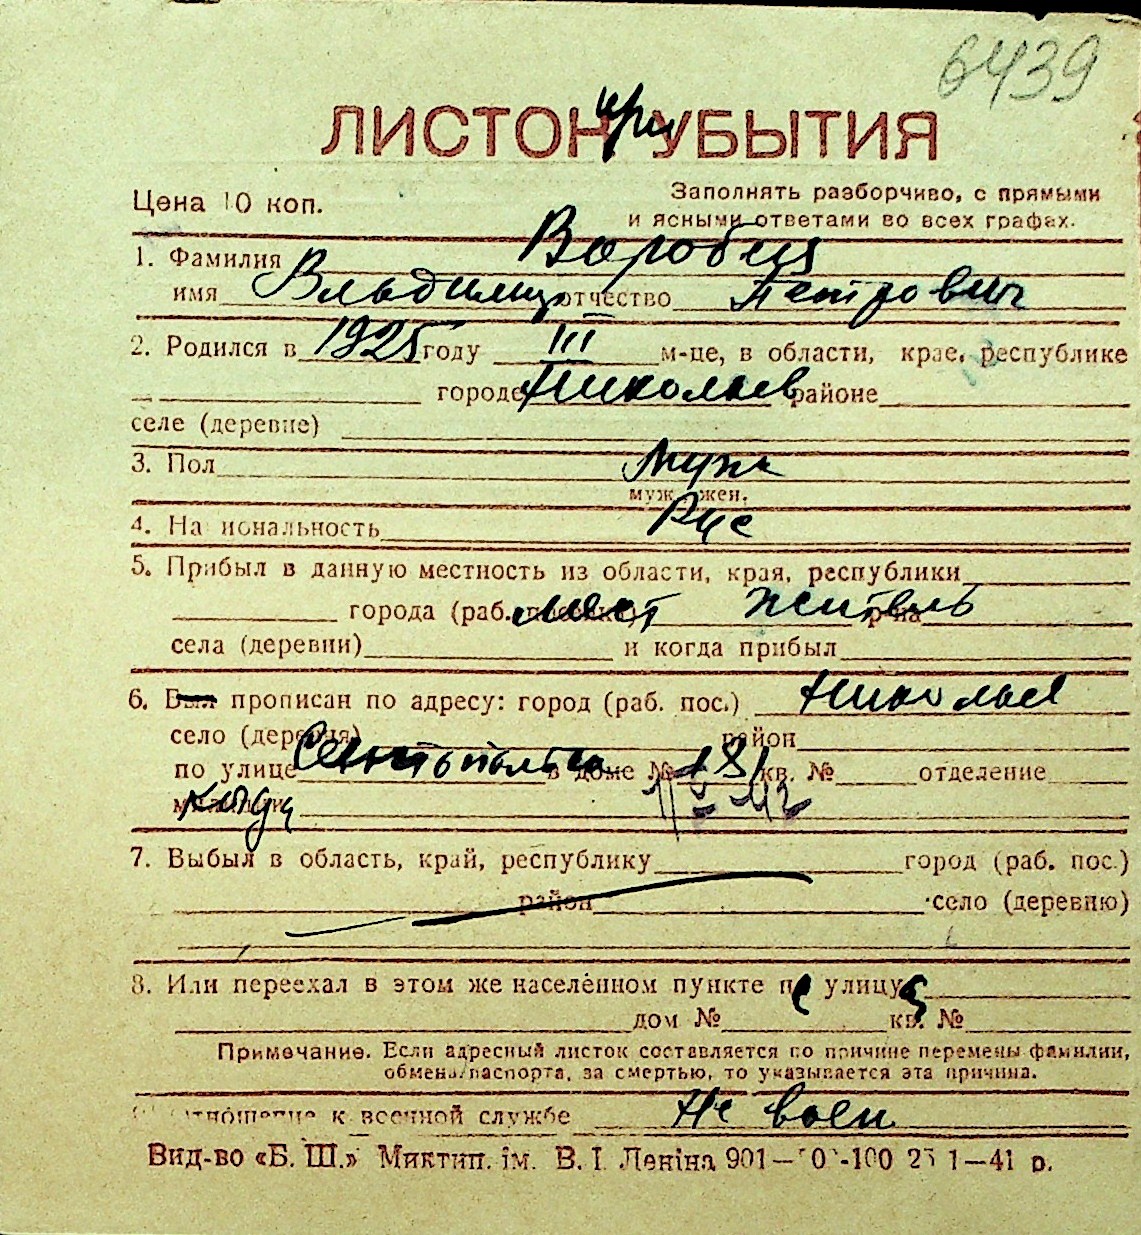 6439
при
ЛИСТОК УБЫТИЯ
Цена 10 коп.
Заполнять разборчиво, с прямыми
и ясными ответами во всех графах.
1. Фамилия
имя Владимир отчество Петрович
2. Родился в 1925 году III м-це, в области, крае, республике
городе Николаев районе
селе (деревне)
3. Пол Муж
муж. жен.
4. Национальность Рус
5. Прибыл в данную местность из области, края, республики
города (раб. поселка) мест житель р-на
села (деревни) и когда прибыл
6. Был прописан по адресу: город (раб. пос.) Николаев
село (деревня) район
по улице в доме № 181 кв. № отделение
милиции 1/X-42
7. Выбыл в область, край, республику город (раб. пос.)
район село (деревню)
8. Или переехал в этом же населённом пункте с улицу
дом № кв. №
Примечание. Если адресный листок составляется по причине перемены фамилии,
обмена паспорта, за смертью, то указывается эта причина.
9. Отношение к военной службе Не воен
Вид-во «Б. Ш.» Миктип. ім. В. І. Леніна 901— 1—41 р.